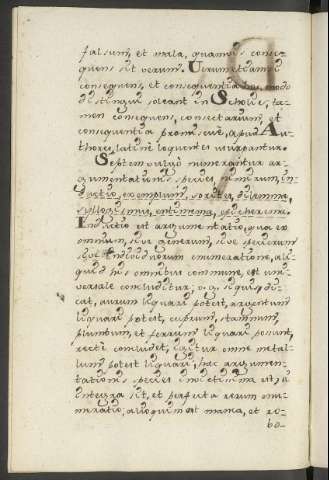 falsum, et mala, quamvis conse-
quens sit verum. Verum etiamsi
consequens, et consequentia hoc modo
distingui soleant in Scholis, ta-
men consequens, consectarium, et
consequentia promiscuè, apud Au-
thores latinè loquentes usurpantur.
Septem vulgò numerantur ar-
gumentationis species, nimirum, in-
ductio, exemplum, sorites, dilemma,
sillogismus, entimema, epicherema.
Inductio est argumentatio, qua ex
omnium, sive generum, sive specierum
sive individuorum enumeratione, ali-
quid his omnibus commune, est uni-
versale concluditur, v.g. siquis di-
cat, aurum liquari potest, argentum
liquari potest, cuprum, stannum,
plumbum, et ferrum liquari possunt,
recte concludet, igitur omne metal-
lum potest liquari, haec argumen-
tationis species inductissima est, si
integra sit, et perfecta rerum enu-
meratio, alioquin est manca, et